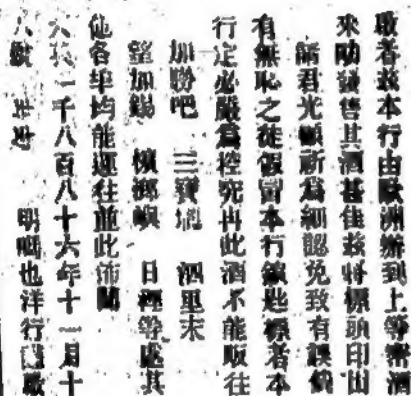 啟者茲本行由歐洲辦到上等酒
來叻發售其酒甚佳茲將標頭印出
諸君光顧祈為細認免致有誤倘
有無恥之徒假冒本行鎖匙標者本
行定必嚴為控究再此酒不能販往
加朥吧 三寶壠 泗里末
望加錫 檳榔嶼 日裡等處其
他各埠均能運往並此佈聞
大英一千八百八十六年十一月十
八號 明嗎也洋行謹啟